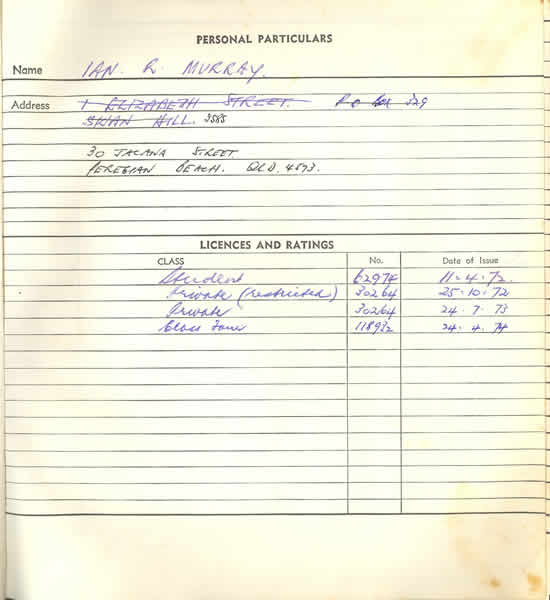 PERSONAL PARTICULARS
Name IAN. R. MURRAY.
Address 1 ELIZABETH STREET. P.O Box 329
SWAN HILL. 3585
30 JACANA STREET
PEREGIAN BEACH. QLD. 4573.
LICENCES AND RATINGS
CLASS No. Date of Issue
Student 62974 11.4.72.
Private (restricted) 30264 25.10.72
Private 30264 24.7.73
Class Four 118932 24.4.74